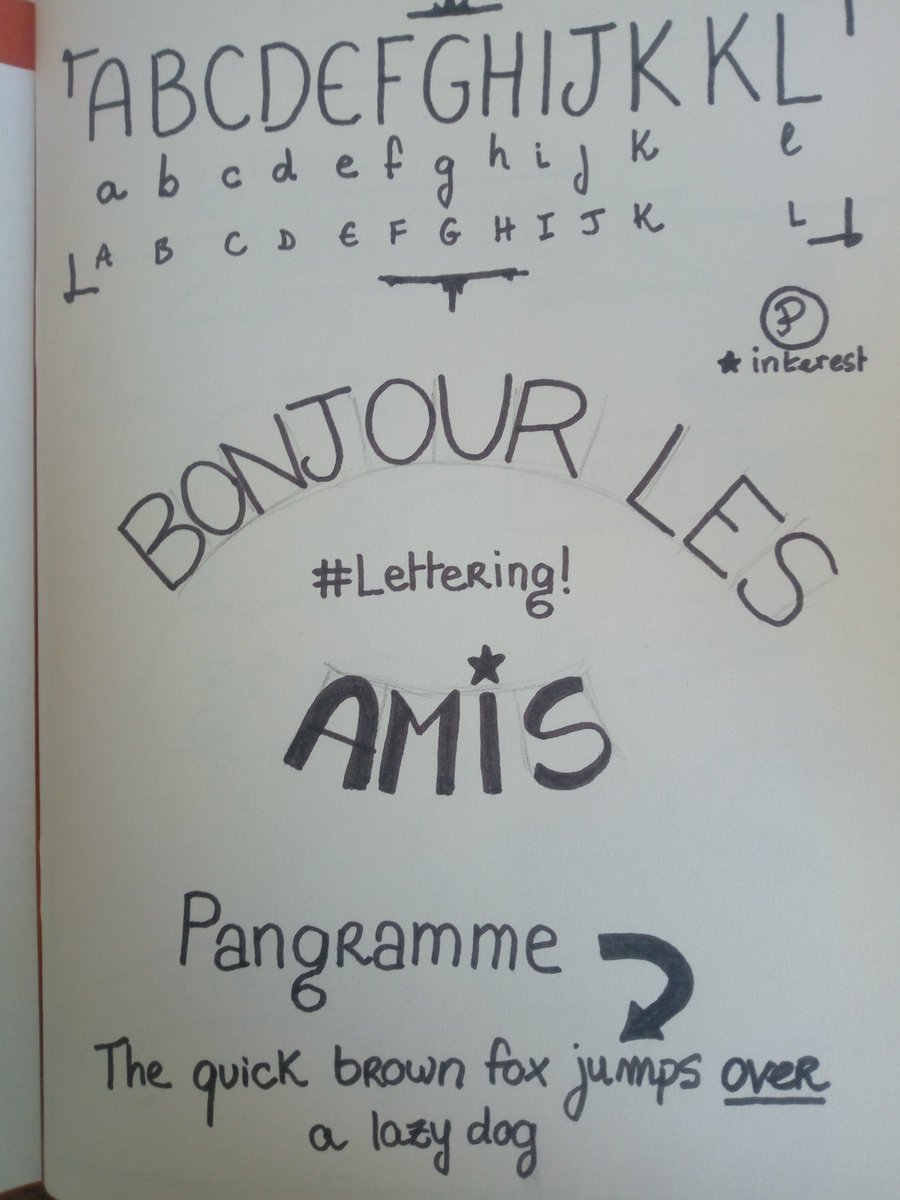 ABCDEFGHIJKKL
a b c d e f g h i j k l
A B C D E F G H I J K L
P
★ interest
BONJOUR LES
#Lettering!
AMiS
Pangramme
The quick brown fox jumps over
a lazy dog